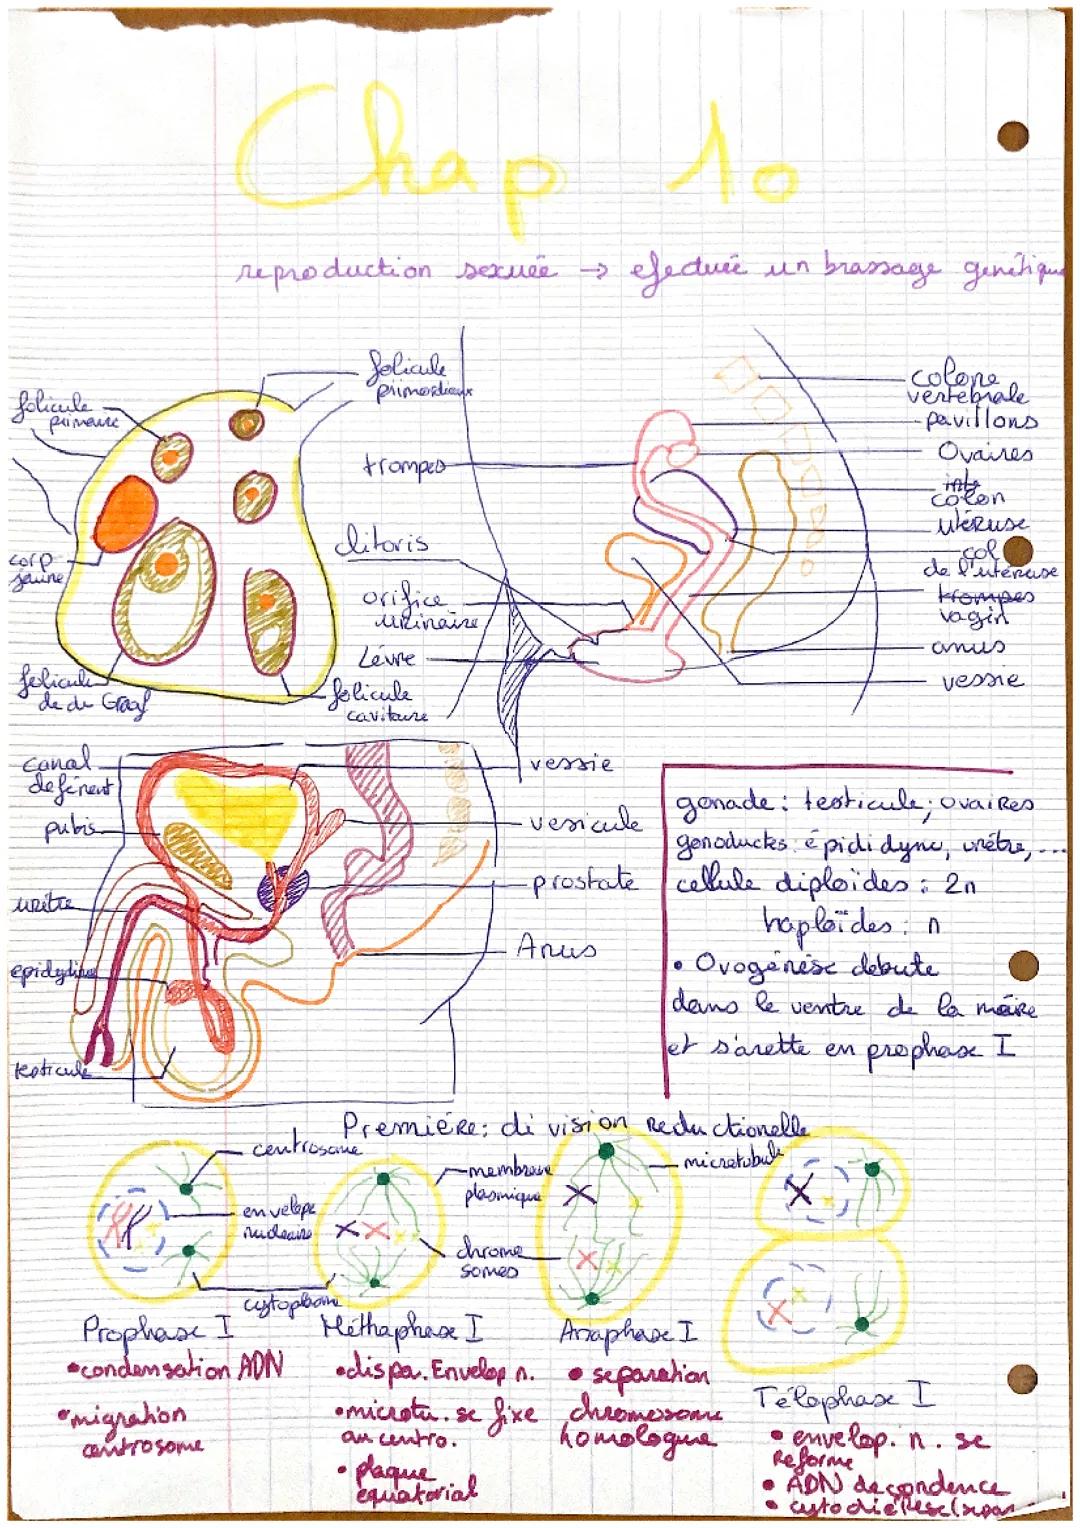 Chap 10
reproduction sexuée → efectuée un brassage genétique
folicule
primaire
corp
jaune
folicule
de de Graaf
folicule
primordiaux
folicule
cavitaire
trompes
clitoris
orifice
urinaire
Lévre
colone
vertébrale
pavillons
Ovaires
inte
côlon
utéruse
col
de l'utéruse
trompes
vagin
anus
vessie
canal
deférent
pubis
urètre
epididyme
testicule
vessie
vesicule
prostate
Anus
gonade : testicule ; ovaires
gonoductes : épididyme, urètre, ...
cellule diploïdes : 2n
haploïdes : n
• Ovogénèse débute
dans le ventre de la mère
et s'arette en prophase I
Première : division reductionelle
centrosome
envelope
nucleaire
cytoplasme
membrane
plasmique
chromo
somes
microtubule
Prophase I
• condensation ADN
• migration
centrosome
Méthaphase I
• dispa. Envelop n.
• microtu. se fixe
au centro.
• plaque
équatorial
Anaphase I
• separation
chromosome
homologue
Télophase I
• envelop. n. se
Reforme
• ADN decondence
• cytodiérese (separ